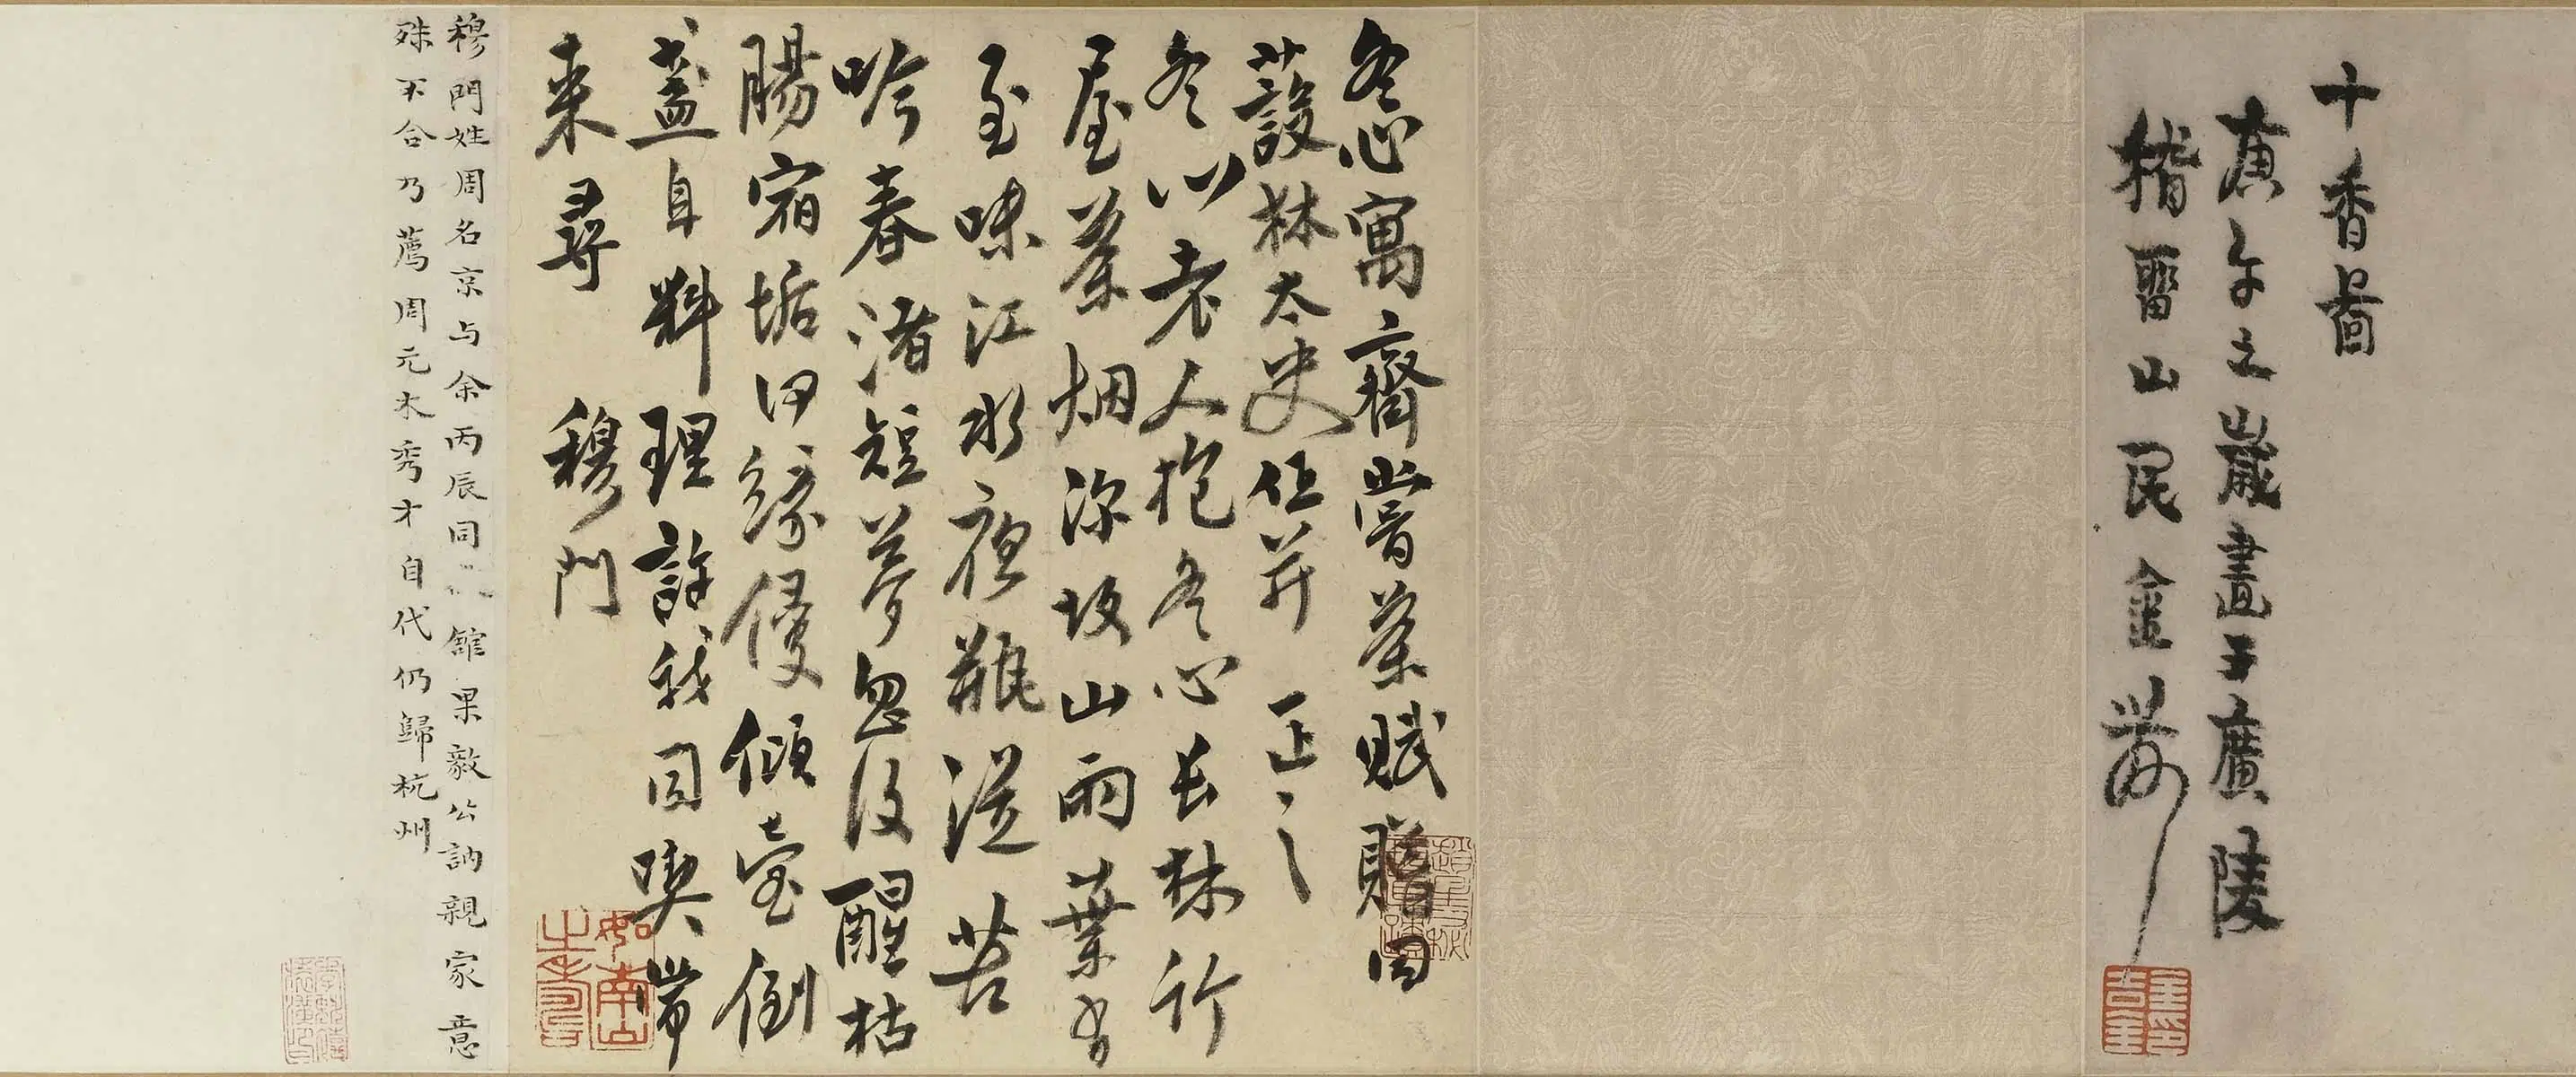 十香圖
庚午之歲畫于廣陵
稽留山民金農
冬心寓齋嘗茶賦贈因
蔎林太史任莽 正之
冬心老人抱冬心長林竹
屋茶烟深坂山雨葉香
至味江水夜瓶澁苦
吟春渚短夢忽復醒枯
腸宿垢日緣侵傾壺倒
盞自料理許我因喫常
来尋 穆門
穆門姓周名京与余丙辰同 館果毅公訥親家意
殊不合乃薦周元木秀才自代仍歸杭州